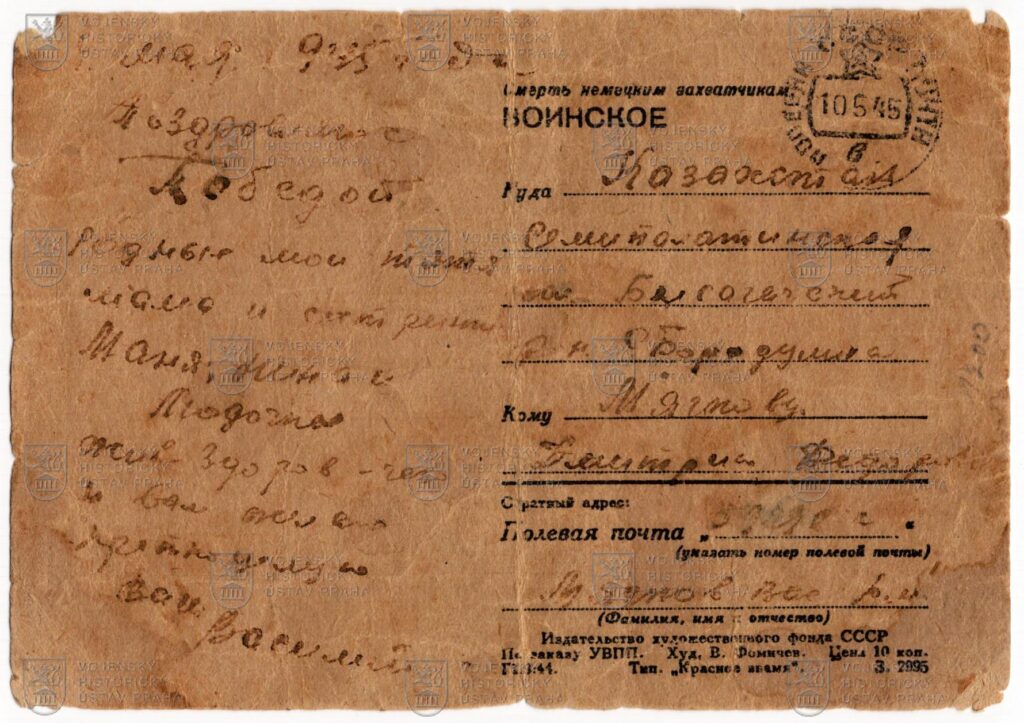 мая 945 года
Поздравляю с
Победой
Родные мои тятя
мама и сестренки
Маня, Нина и
Людочка
Жив здоров чего
и вам желаю
целую
Ваш
Василий
Смерть немецким захватчикам
ВОИНСКОЕ
10 5 45
Куда Казахстан
Семипалатинская
Бельагачский
р-н с Бородулиха
Кому Мягкову
Дмитрию
Обратный адрес:
Полевая почта „ “
(указать номер полевой почты)
Мягков Вас
(Фамилия, имя и отчество)
Издательство художественного фонда СССР
По заказу УВПП. Худ. В. Фомичев. Цена 10 коп.
Тип. „Красное знамя“. З. 2995
VOJENSKÝ
HISTORICKÝ
ÚSTAV PRAHA